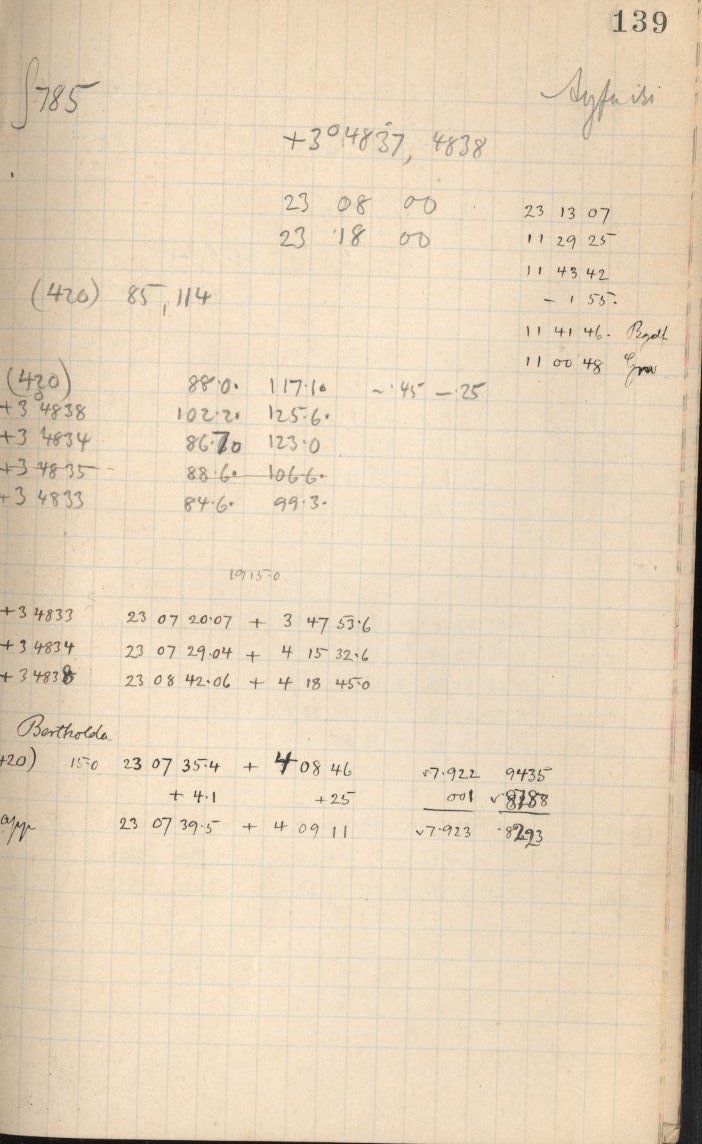 139
∫785
+3° 4837, 4838
23 08 00
23 18 00
23 13 07
11 29 25
11 43 42
- 1 55.
11 41 46.
11 00 48
(420) 85, 114
(420) 88.0. 117.1. - .45 - .25
+3° 4838 102.2. 125.6.
+3 4834 86.7. 123.0
+3 4835 88.6. 106.6.
+3 4833 84.6. 99.3.
1915.0
+3 4833 23 07 20.07 + 3 47 53.6
+3 4834 23 07 29.04 + 4 15 32.6
+3 4838 23 08 42.06 + 4 18 45.0
Bertholda
420) 15.0 23 07 35.4 + 4 08 46 v7.922 9435
+ 4.1 +25 001
app 23 07 39.5 + 4 09 11 v7.923 .8293